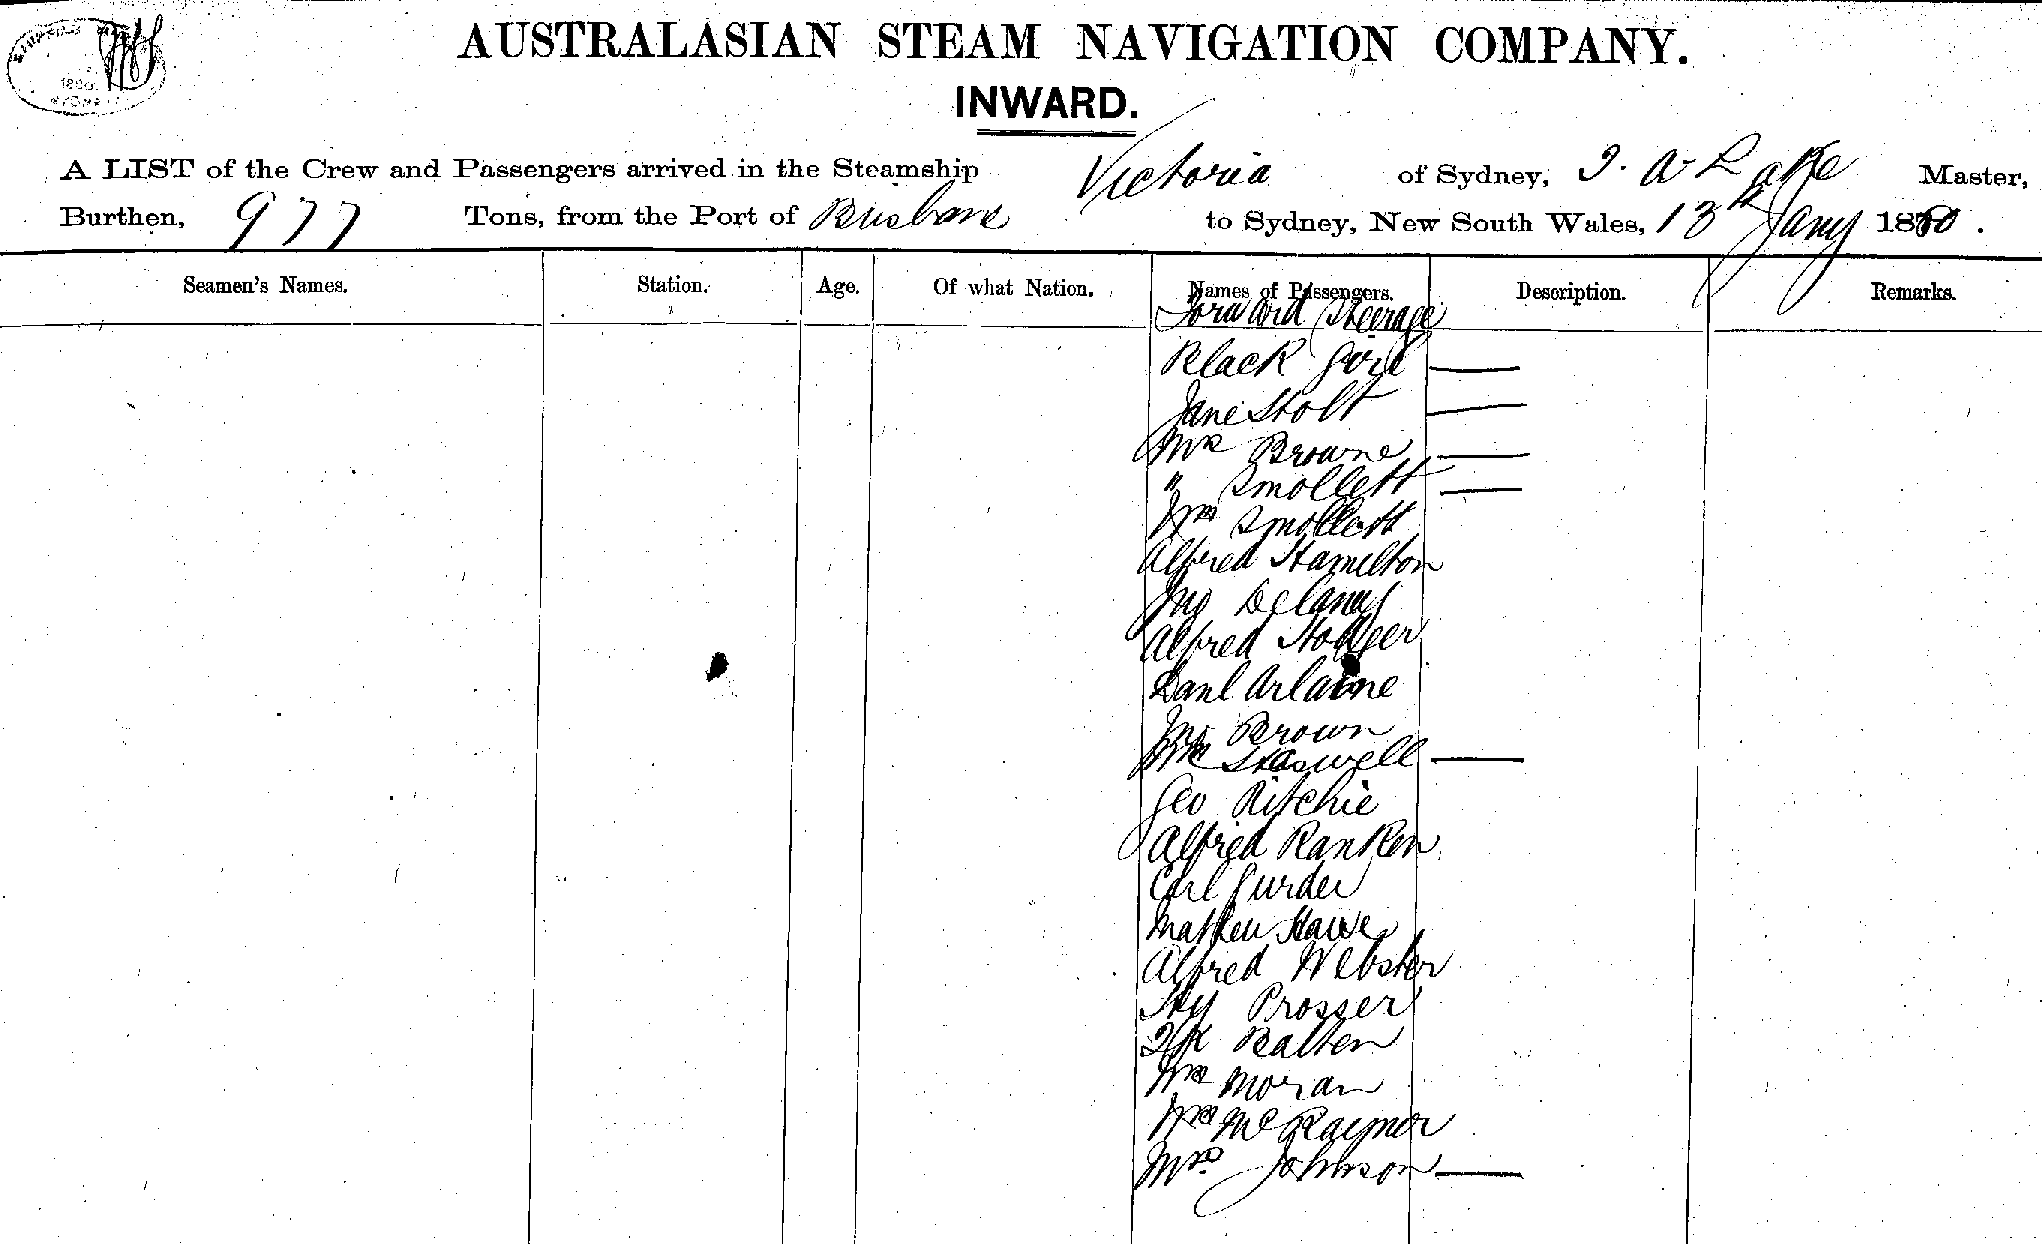 AUSTRALASIAN STEAM NAVIGATION COMPANY.
INWARD.
A LIST of the Crew and Passengers arrived in the Steamship Victoria of Sydney, J. A Lake Master,
Burthen, 977 Tons, from the Port of Brisbane to Sydney, New South Wales, 13th Jany 1880.
Seamen's Names. Station. Age. Of what Nation. Names of Passengers. Description. Remarks.
Forward Steerage
Black Girl
Jane Stolt
Mrs Browne
" Smollett
Wm Smollett
Alfred Hamilton
Jno Delaney
Alfred Hodger
Danl
Jno Brown
Geo Ritchie
Alfred Ranken
Carl
Mathew Hawe
Alfred Webster
Hy Prosser
Balten
Wm Moran
Wm McRaynor
Mrs Johnson